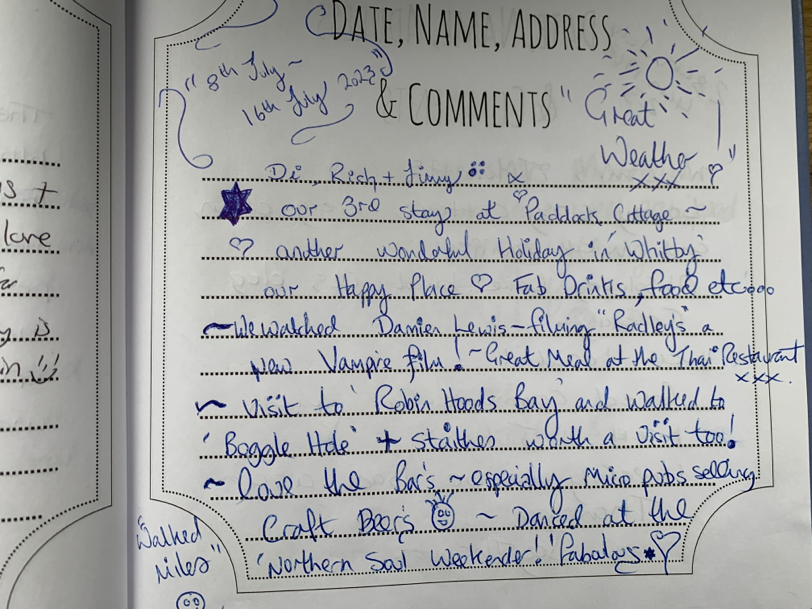 DATE, NAME, ADDRESS
& COMMENTS
"8th July ~
16th July 2023"
"Great
Weather"
xxx
Di, Rich + x
our 3rd stay at Paddock Cottage ~
another wonderful Holiday in 'Whitby'
our Happy Place ♡ Fab Drinks, food etc....
~ We watched Damien Lewis - filming "Radley's" a
new Vampire film! ~ Great Meal at the Thai Restaurant
xxx.
~ Visit to 'Robin Hoods Bay' and walked to
'Boggle Hole' + Staithes worth a visit too!
~ Love the Bar's ~ especially Micro pubs selling
Craft Beer's ~ Danced at the
'Northern Soul Weekender!' Fabulous
"Walked
Miles"
s +
love
is
in